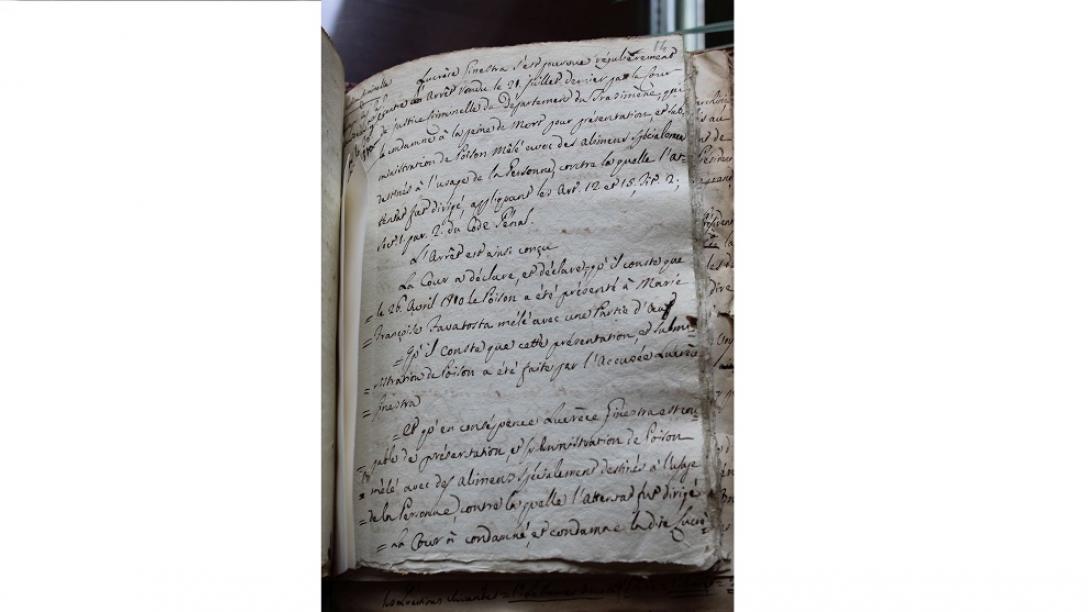 14
Lucrèce Finestra s'est pourvue régulièrement
contre un Arrêt rendu le 21. Juillet dernier par la Cour
de justice Criminelle du Département du Trasimène, qui
la condamne à la peine de Mort pour présentation, et sub-
ministration de Poison mêlé avec des alimens spécialement
destinés à l'usage de la Personne, contre la quelle l'at-
tentat fut dirigé, appliquant les Art. 12 et 15, Tit. 2,
Sect. 1. par. 2. du Code Pénal.
L'Arrêt est ainsi conçu
La Cour a déclaré, et déclare, qu'il conste que
= le 26. Avril 1810 le Poison a été présenté à Marie
= Françoise Favatosta mêlé avec une Partie d'Oeuf
= Qu'il conste que cette présentation, et submi-
= nistration de Poison a été faite par l'Accusée Lucrèce
= Finestra
= Et qu'en conséquence Lucrèce Finestra est cou-
= pable de présentation, et subministration de Poison
= mêlé avec des alimens spécialement destinés à l'usage
= de la Personne, contre la quelle l'attentat fut dirigé
= La Cour a condamné, et condamne la dite Lucrè=